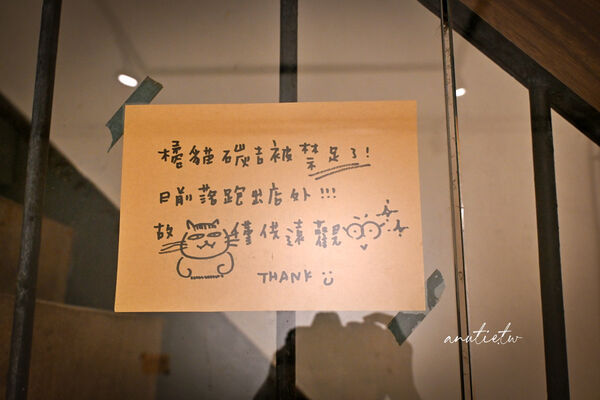 橘貓碳吉被禁足了!
日前落跑出店外!!!
故僅供遠觀
THANK
anutietw